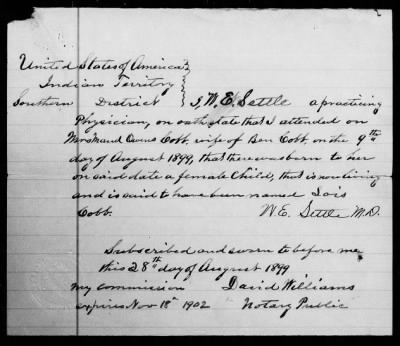 United States of America }
Indian Territory }
Southern District } I, W. E. Settle a practicing
Physician, on oath state that I attended on
Mrs Maud Owens Cobb, wife of Ben Cobb, on the 9th
day of August 1899, that there was born to her
on said date a female child, that is now living
and is said to have been named Lois
Cobb. W. E. Settle M.D.
Subscribed and sworn to before me
this 28th day of August 1899
my commission David Williams
expires Nov 18th 1902 Notary Public